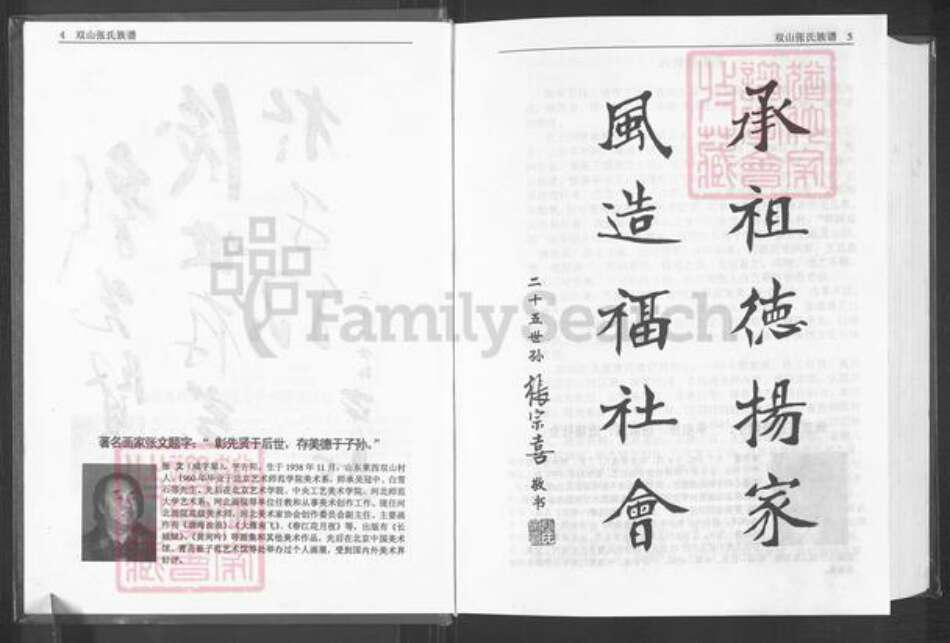 4 双山张氏族谱
著名画家张文题字:“彰先贤于后世,存美德于子孙。”
张 文(咸字辈),字方和,生于1938年11月,山东莱西双山村
人。1960年毕业于北京艺术师范学院美术系,师承吴冠中、白雪
石等先生。先后在北京艺术学院、中央工艺美术学院、河北师范
大学艺术系、河北画院等单位任教和从事美术创作工作。现任河
北画院高级美术师、河北美术家协会创作委员会副主任。主要画
作有《渤海 》、《大雁南飞》、《春江花月夜》等,出版有《长
城 》、《黄河吟》等画集和其他美术作品。先后在北京中国美术
馆、青岛 艺术馆等处举办过个人画展,受到国内外美术界
好评。
双山张氏族谱 5
承祖德揚家
風造福社會
二十五世孙 張宗喜 敬书
FamilySearch